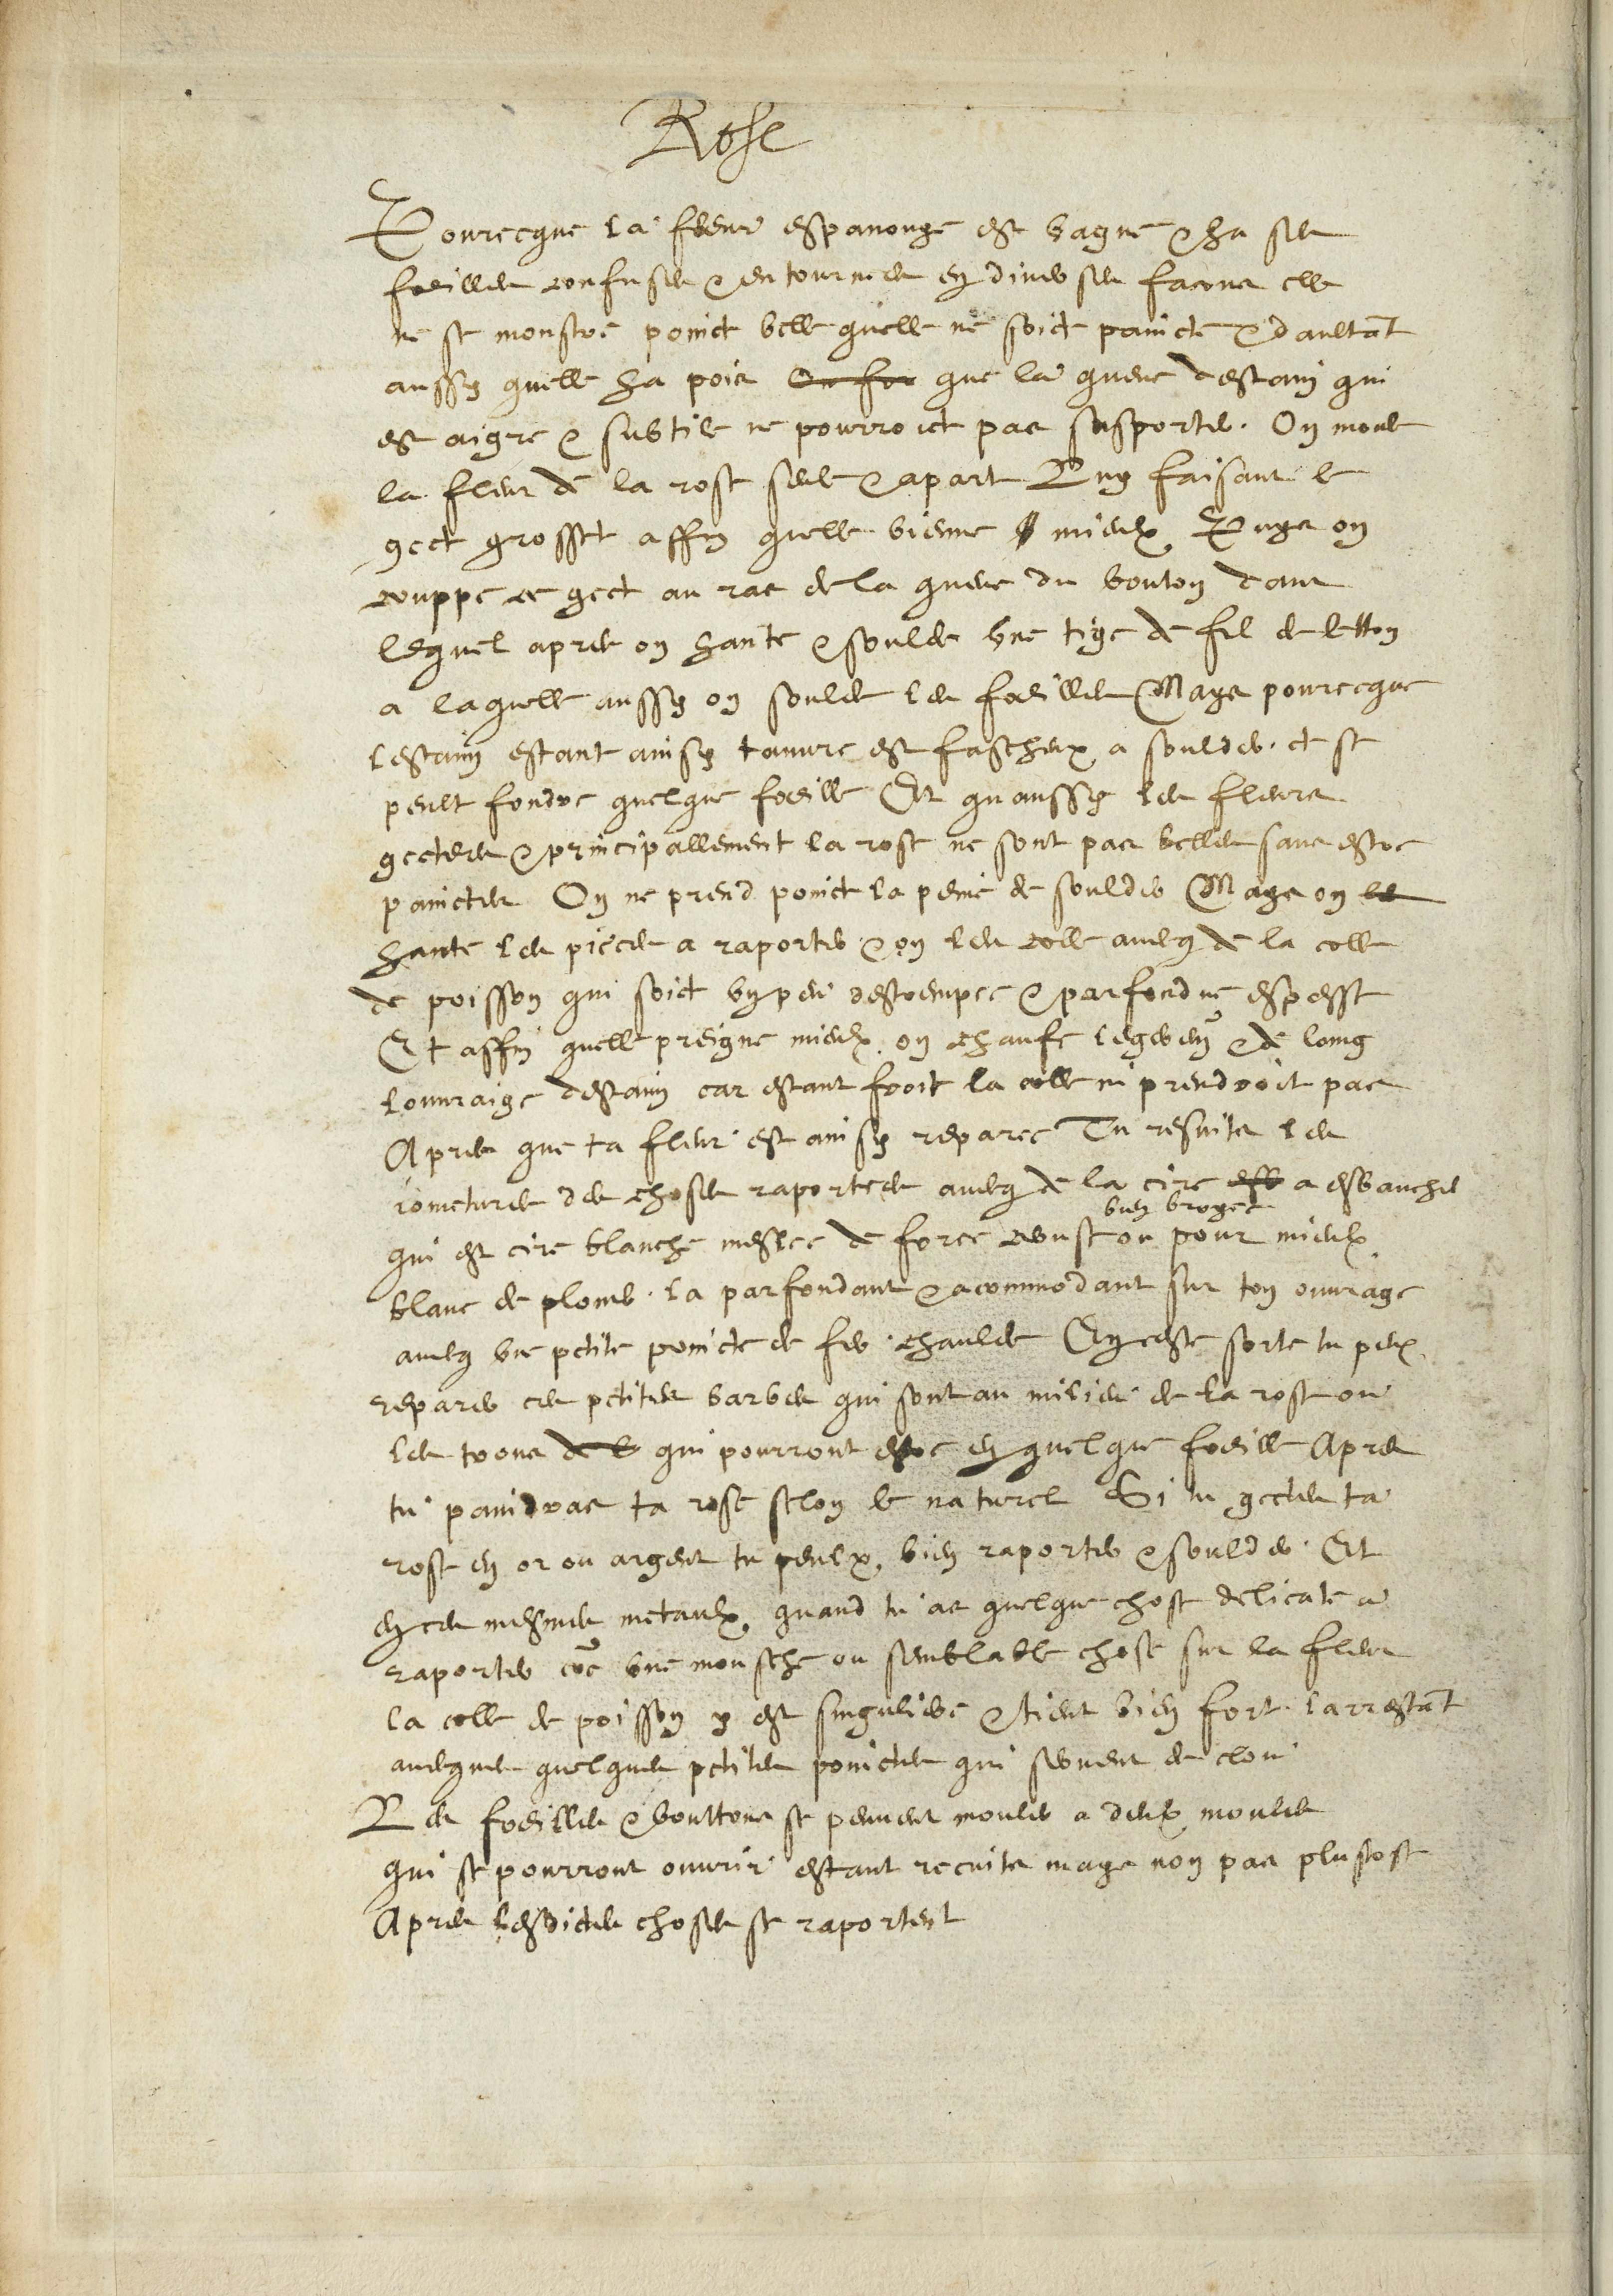 Rose
Pourceque la fleur espanouye est vague & ha ses
foeilles confuses & entournees en diverses facons elle
ne se monstre poinct belle quelle ne soict paincte & daultãt
aussy quelle ha pois On fon que la queue destain qui
est aigre & subtile ne pourroict pas supporter. On moule
la fleur de la rose seule & apart Luy faisant le
gect grosset affin quelle vienne mieulx Puys on
couppe ce gect au ras de la queue du bouton dans
lequel apres on hante & soulde une tige de fil de letton
a laquelle aussy on soulde les foeilles Mays pourceque
lestaim estant ainsy tanvre est fascheux a soulder. et se
peult fondre quelque foeille Et quaussy les fleurs
gectees & principallement la rose ne sont pas belles sans estre
painctes On ne prend poinct la peine de soulder Mays on les
hante les pieces a raporter & on les colle avecq de la colle
de poisson qui soict un peu destrempee & parfondue espesse
Et affin quelle preigne mieulx on chaufe legerem̃ & de loing
louvraige destaim car estant froit la colle ni prendroit pas
Apres que ta fleur est ainsy reparee Tu resuites les
joinctures des choses raportees avecq de la cire esb a esbaucher
bien broyee
qui est cire blanche meslee de force ceruse ou pour mieulx
blanc de plomb. la parfondant & acommodant sur ton ouvrage
avecq une petite poincte de fer chaulde En ceste sorte tu peulx
reparer ces petites barbes qui sont au milieu de la rose ou
les trous de l qui pourront estre en quelque foeille Apres
tu paindras ta rose selon le naturel Si tu gectes ta
rose en or ou argent tu peulx bien raporter & soulder. Et
en ces mesmes metaulx quand tu as quelque chose delicate a
raporter cõe une mousche ou semblable chose sur la fleur
la colle de poisson y est singuliere & tient bien fort. larrestãt
avecques quelques petites poinctes qui servent de clou
Les foeilles & bouttons se peuvent mouler a deulx moules
qui se pourront ouvrir estant recuits mays non pas plustost
Apres lesdictes choses se raportent